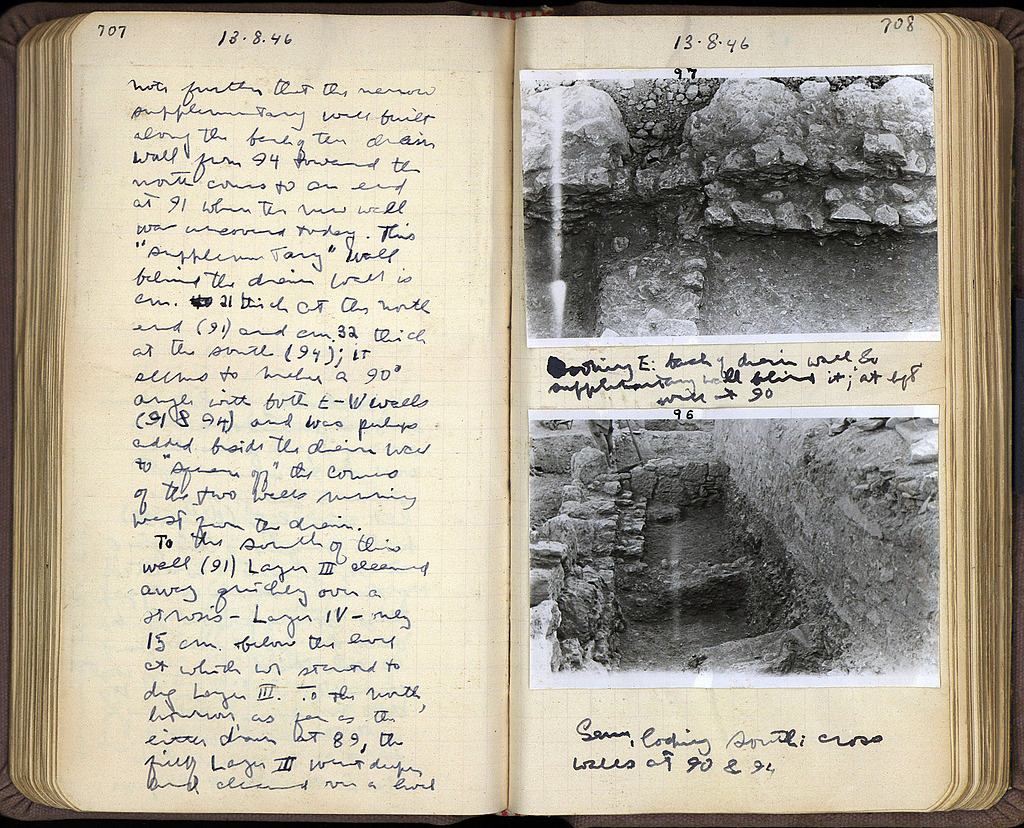 707
13·8·46
note further that the narrow
supplementary wall built
along the back of the drain
wall from 94 toward the
north comes to an end
at 91 where the new wall
was uncovered today. This
"supplementary" wall
behind the drain wall is
cm. 21 thick at the north
end (91) and cm. 32 thick
at the south (94); it
seems to make a 90°
angle with both E-W walls
(91 & 94) and was perhaps
added beside the drain wall
to "square off" the corners
of the two walls running
west from the drain.
To the south of this
wall (91) Layer III cleaned
away quickly over a
strosis - Layer IV - only
15 cm. below the level
at which we started to
dig Layer III. To the north,
however, as far as the
drain at 89, the
fill Layer III went deeper,
and cleaned over a level
708
13·8·46
97
Looking E: back of drain wall &
supplementary wall behind it; at
wall at 90
96
Same, looking south: cross
walls at 90 & 94